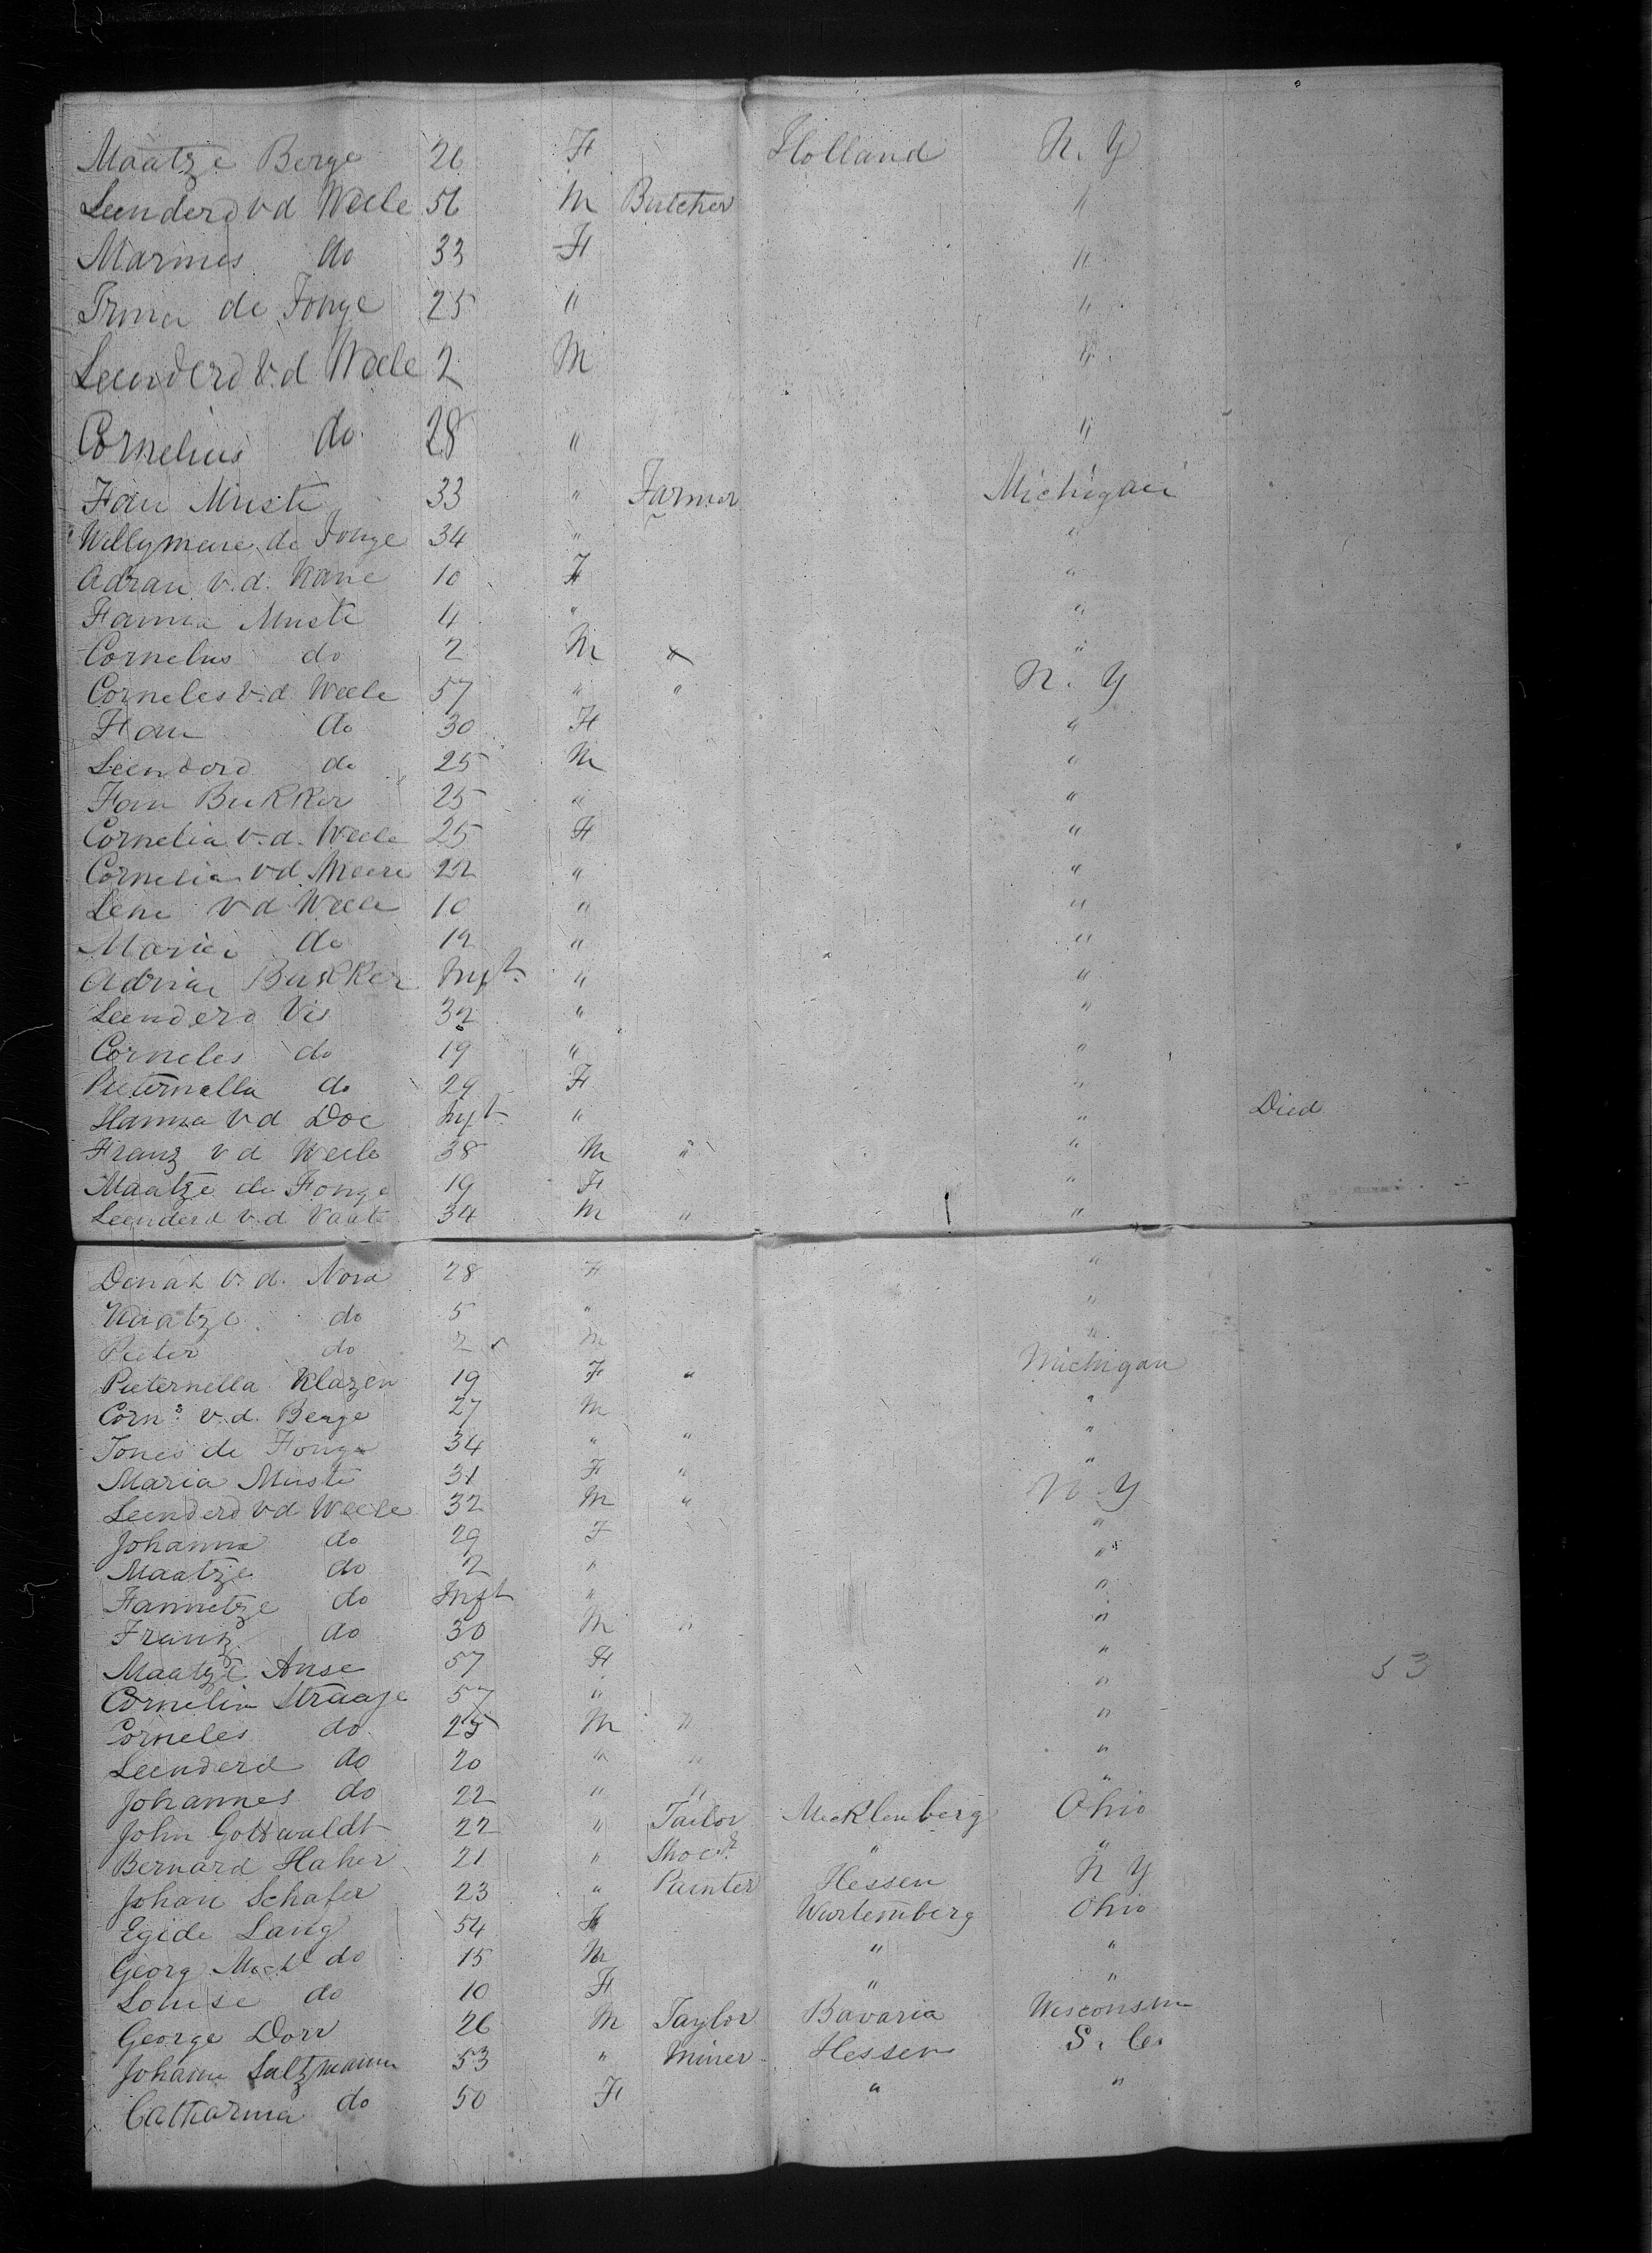 Maatze Berge 26 F Holland N. Y
Leenderd v d Weele 56 M Butcher "
Marines do 33 F "
Irina de Jonge 25 " "
Leenderd v. d Weele 2 M "
Cornelius do 28 " "
Jan Muste 33 " Farmer Michigan
Willymene de Jonge 34 " "
Adran v. d. Nane 10 F "
Janna Muste 4 " "
Cornelus do 2 M "
Corneles v. d Weele 57 " " N. Y
Jan do 30 F "
Leenderd do 25 M "
Jan Bukker 25 " "
Cornelia v. d. Weele 25 F "
Cornelia v d Meere 22 " "
Lene v d Weele 10 " "
Maria do 19 " "
Adriae Bukker Inft " "
Leenderd Vis 32 " "
Corneles do 19 " "
Pieternella do 29 F "
Hanna v d Doe Inft " " Died
Franz v d Weele 38 M " "
Maatze de Jonge 19 F "
Leenderd v. d Vaate 34 M " "
Denah v. d. Nora 28 F "
Maatze do 5 " "
Pieter do 2 M "
Pieternella Klazen 19 F " Michigan
Corns v. d. Berge 27 M "
Jones de Jonge 34 " " "
Maria Muste 31 F " "
Leenderd v d Weele 32 M " N. Y
Johanna do 29 F "
Maatze do 2 " "
Jannetze do Inft " "
Franz do 30 M " "
Maatze Anse 57 F " 53
Cornelia Straaje 57 " "
Corneles do 25 M " "
Leenderd do 20 " " "
Johannes do 22 " " "
John Gottwaldt 22 " Tailor Mecklenberg Ohio
Bernard Haher 21 " " "
Johan Schafer 23 " Painter Hessen N Y
Egide Lang 54 F Wurtemberg Ohio
Georg Michl do 15 M " "
Louise do 10 F " "
George Dorr 26 M Taylor Bavaria Wisconsin
Johann Saltzmann 53 " Miner Hessen
Catharina do 50 F " "